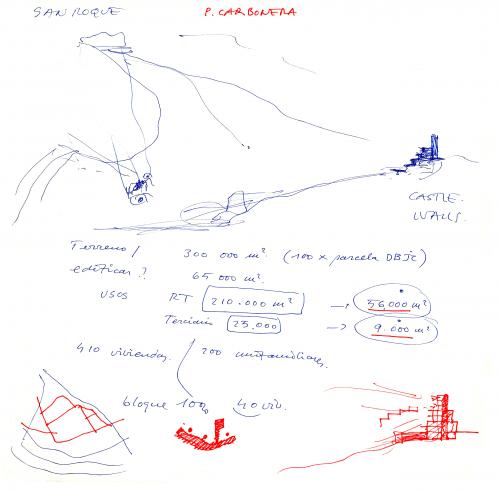 SAN ROQUE
P. CARBONERA
CASTLE.
WALLS.
Terreno / 300 000 m². (100 x parcela DBJC)
edificar? 65 000 m².
USOS RT 210.000 m² → 56.000 m²
Terciario 25.000 → 9.000 m²
410 viviendas. / 200 unifamiliares.
bloque 100 40 viv.